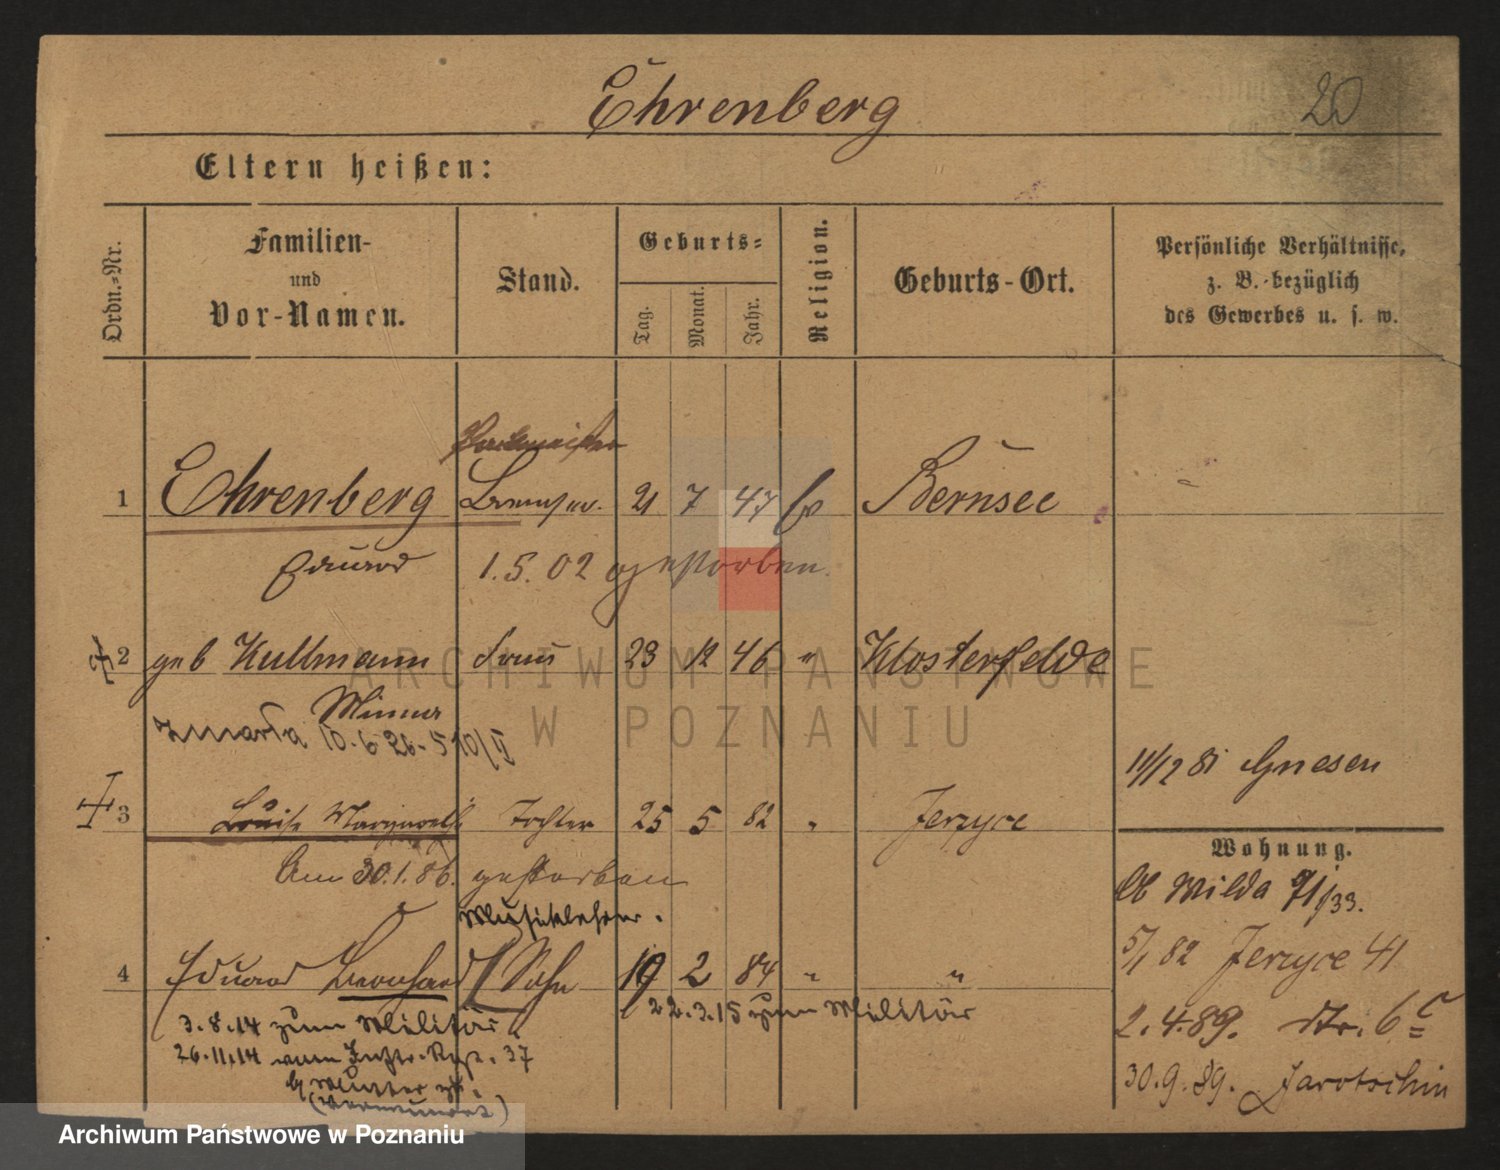 Ehrenberg
20
Eltern heißen:
Ordn.-Nr.
Familien-
und
Vor-Namen.
Stand.
Geburts-
Tag.
Monat.
Jahr.
Religion.
Geburts-Ort.
Persönliche Verhältnisse,
z. B. bezüglich
des Gewerbes u. s. w.
Packmeister
1 Ehrenberg 21 7 47 Bernsee
Eduard 1.5.02 gestorben.
2 geb Kullmann Frau 23 12 46 " Klosterfelde
Minna
zmarła 10.6.26.
11/12 81 Gnesen
3 Louise Tochter 25 5 82 " Jerzyce
Am 30.1.86. gestorben
Wohnung.
Musiklehrer.
Wilda
4 Eduard Leonhard Sohn 19 2 84 " "
5/1 82 Jerzyce 41
22.3.15 zum Militär
3.8.14 zum Militär
2.4.89. 6c
26.11.14 vom 37
30.9.89. Jarotschin
Mutter
(verwundet)
ARCHIWUM PAŃSTWOWE
W POZNANIU
Archiwum Państwowe w Poznaniu